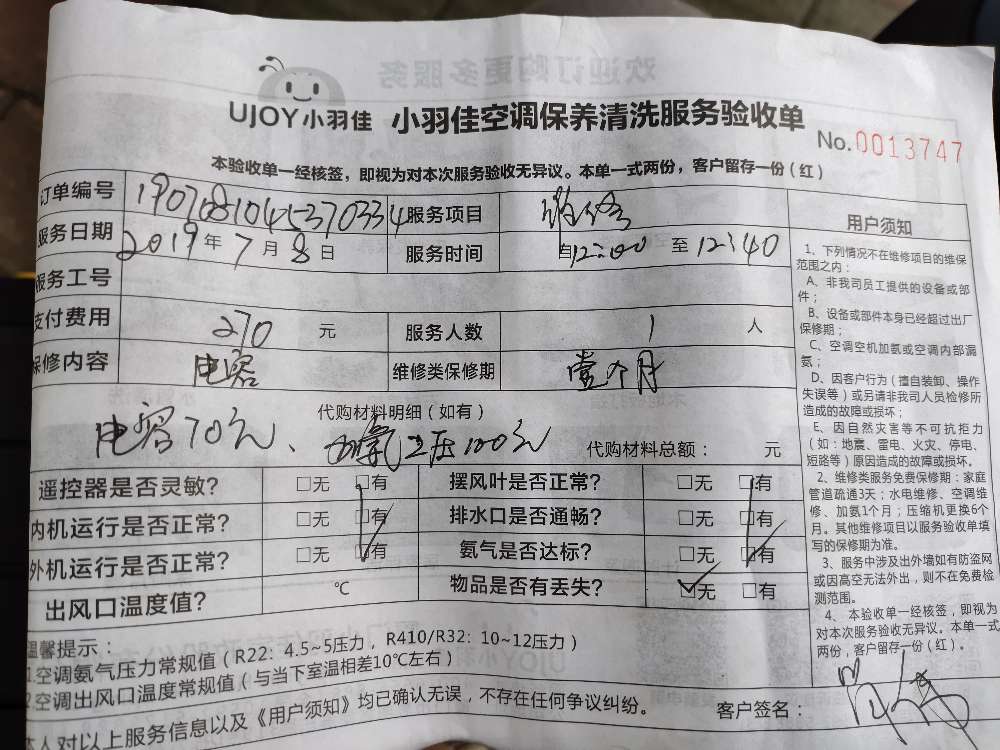 UJOY小羽佳 小羽佳空调保养清洗服务验收单
No.0013747
本验收单一经核签，即视为对本次服务验收无异议。本单一式两份，客户留存一份（红）
订单编号 服务项目 维修
服务日期 2019年7月8日 服务时间 自12:00至12:40
服务工号
支付费用 270元 服务人数 1人
保修内容 电容 维修类保修期 壹个月
代购材料明细（如有）
电容70元、加氨2压100元 代购材料总额： 元
遥控器是否灵敏? □无 □有 摆风叶是否正常? □无 □有
内机运行是否正常? □无 □有 排水口是否通畅? □无 □有
外机运行是否正常? □无 □有 氨气是否达标? □无 □有
出风口温度值? ℃ 物品是否有丢失? □无 □有
温馨提示：
1.空调氨气压力常规值（R22：4.5~5压力，R410/R32：10~12压力）
2.空调出风口温度常规值（与当下室温相差10℃左右）
本人对以上服务信息以及《用户须知》均已确认无误，不存在任何争议纠纷。
客户签名：
用户须知
1、下列情况不在维修项目的维保
范围之内：
A、非我司员工提供的设备或部
件；
B、设备或部件本身已经超过出厂
保修期；
C、空调空机加氨或空调内部漏
氨；
D、因客户行为（擅自装卸、操作
失误等）或另请非我司人员检修所
造成的故障或损坏；
E、因自然灾害等不可抗拒力
（如：地震、雷电、火灾、停电、
短路等）原因造成的故障或损坏。
2、维修类服务免费保修期：家庭
管道疏通3天；水电维修、空调维
修、加氨1个月；压缩机更换6个
月。其他维修项目以服务验收单填
写的保修期为准。
3、服务中涉及出外墙如有防盗网
或因高空无法外出，则不在免费检
测范围。
4、本验收单一经核签，即视为
对本次服务验收无异议。本单一式
两份，客户留存一份（红）。